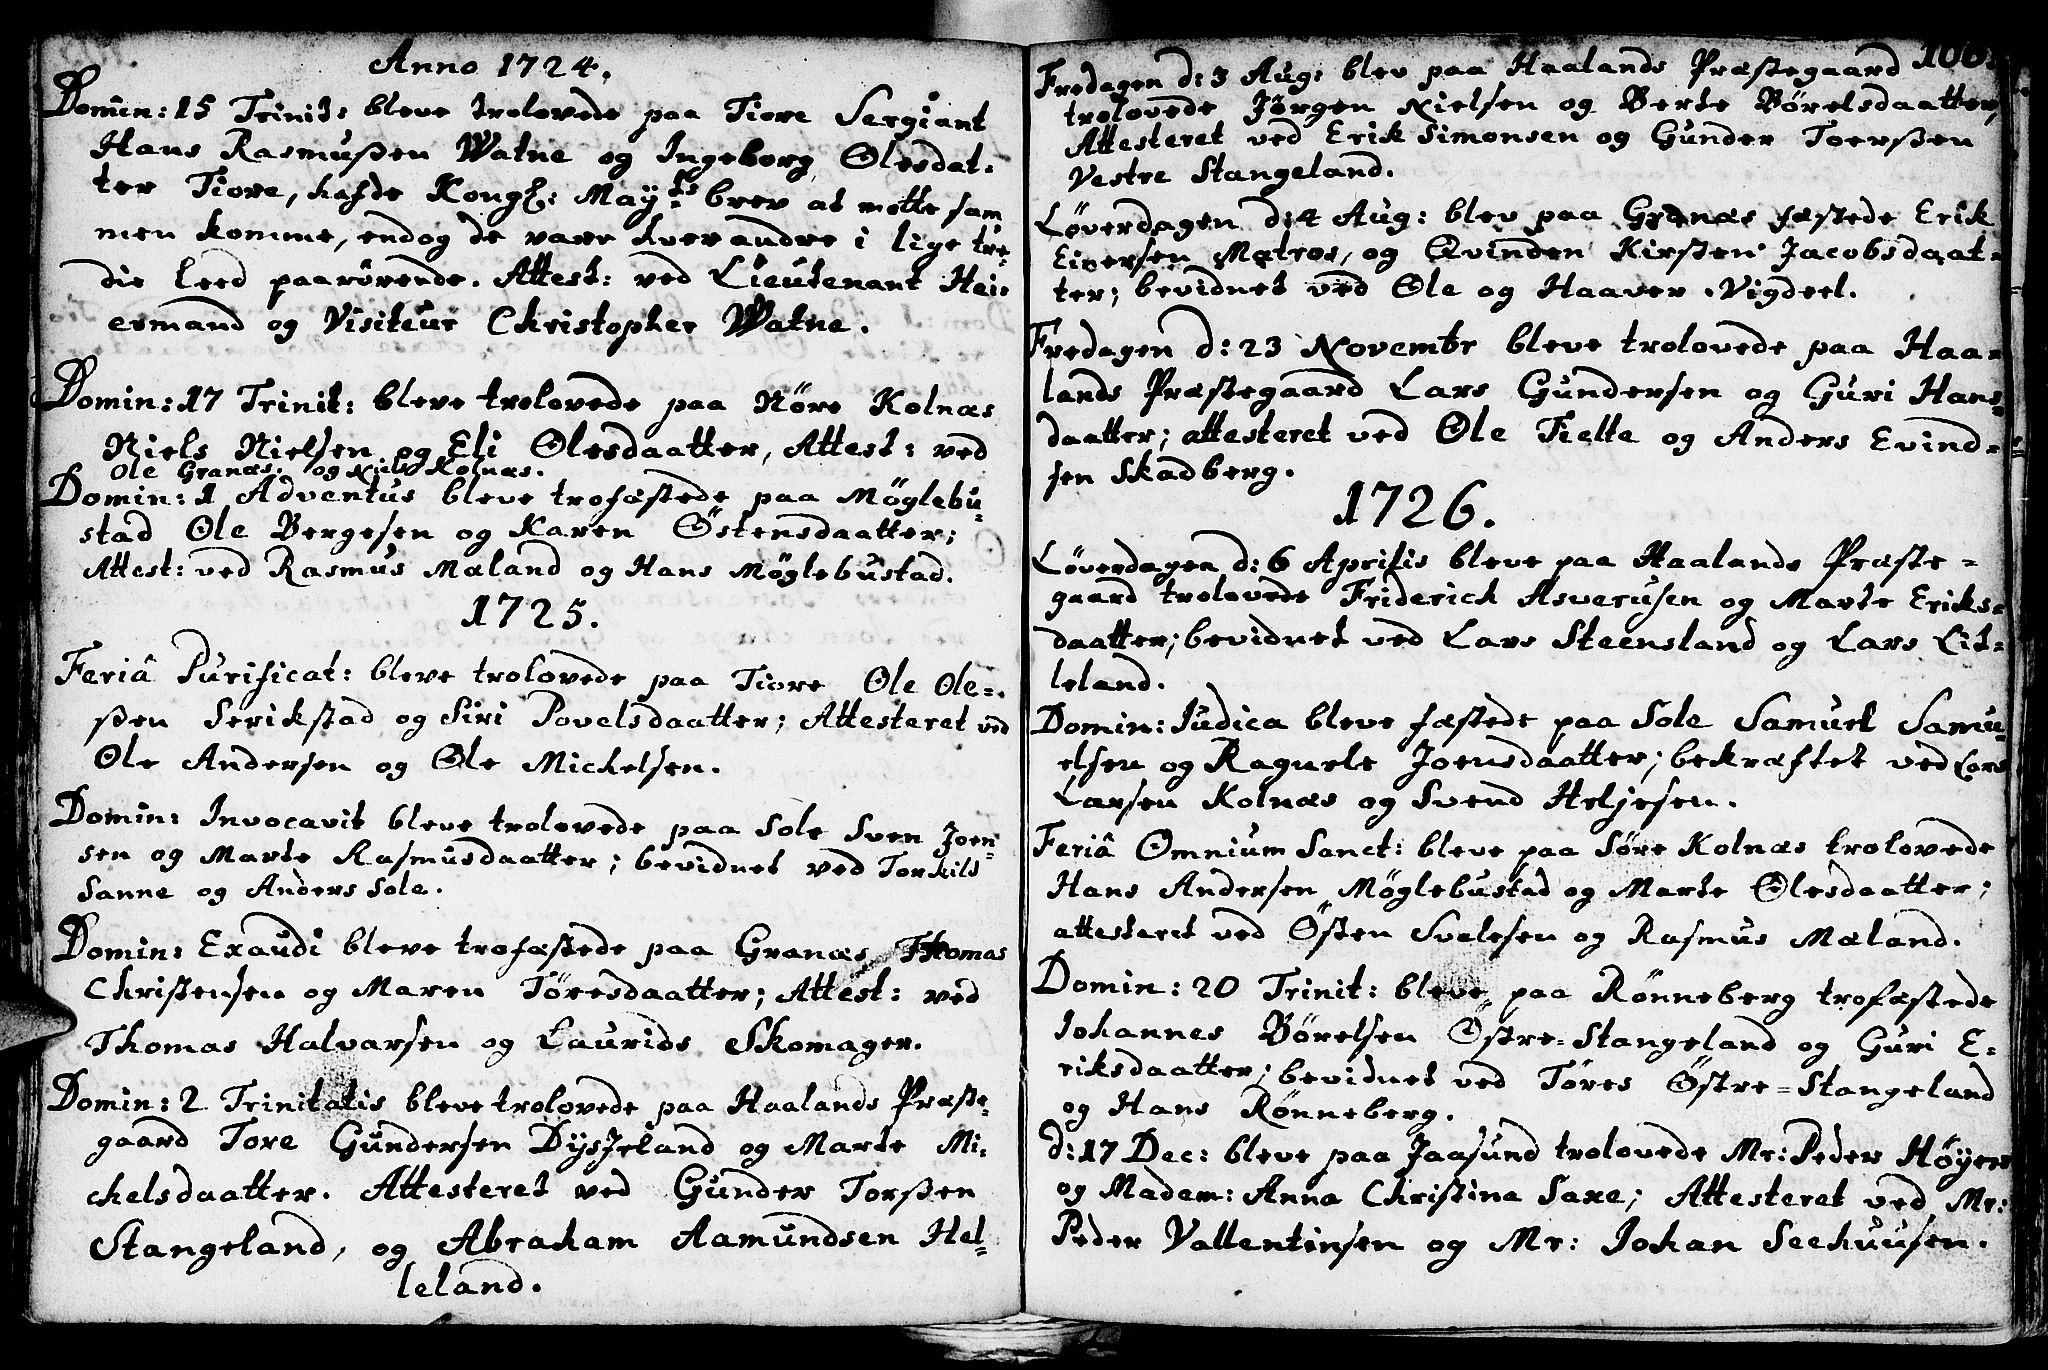 Anno 1724.
Domin: 15 Trinit: bleve trolovede paa Tiore Sergiant
Hans Rasmusßen Watne og Ingeborg Olesdat-
ter Tiore, hafde Kongl: Mayts brev at motte sam
men komme, endog de vare hverandre i lige tre-
die leed paarörende. Attest: ved Lieutenant Hei-
ermand og Visiteur Christopher Watne.
Domin: 17 Trinit: bleve trolovede paa Nöre Kolnæs
Niels Nielsen og Eli Olesdaatter, Attest: ved
Ole Granæs og Niels Kolnæs.
Domin: 1 Adventus bleve trofæstede paa Möglebu-
stad Ole Bergesen og Karen Östensdaatter;
Attest: ved Rasmus Mæland og Hans Möglebustad.
1725.
Feriâ Purificat: bleve trolovede paa Tiore Ole Ole-
ßen Serikstad og Siri Povelsdaatter; Attesteret ved
Ole Andersen og Ole Michelsen.
Domin: Invocavit bleve trolovede paa Sole Sven Joen-
sen og Marte Rasmusdaatter; bevidnet ved Torkild
Sanne og Anders Sole.
Domin: Exaudi bleve trofæstede paa Granæs Thomas
Christensen og Maren Töresdaatter; Attest: ved
Thomas Halvarsen og Laurids Skomager.
Domin: 2 Trinitatis bleve trolovede paa Haalands Præste-
gaard Tore Gundersen Dysjeland og Marte Mi-
chelsdaatter. Attesteret ved Gunder Torsßen
Stangeland, og Abraham Aamundsen Hel-
leland.
106.
Fredagen d: 3 Aug: blev paa Haalands Præstegaard
trolovede Jörgen Nielsen og Berte Börelsdaatter,
Attesteret ved Erik Simonsen og Gunder Toersßen
Vestre Stangeland.
Löverdagen d: 4 Aug: blev paa Granæs fæstede Erik
Eiversen Matros, og Qvinden Kirsten Jacobsdaat-
ter; bevidnet ved Ole og Haaver Vigdeel.
Fredagen d: 23 Novembr bleve trolovede paa Haa-
lands Præstegaard Lars Gundersen og Guri Hans-
daatter; attesteret ved Ole Tielte og Anders Evind-
sen Skadberg.
1726.
Löverdagen d: 6 Aprilis bleve paa Haalands Præste-
gaard trolovede Friderich Asverusen og Marte Eriks-
daatter; bevidnet ved Lars Steensland og Lars Lit-
leland.
Domin: Judica bleve fæstede paa Sole Samuel Samu-
elsen og Ragnele Joensdaatter; bekræftet ved Lars
Larsen Kolnæs og Svend Heljesen.
Feriâ Omnium Sanct: bleve paa Söre Kolnæs trolovede
Hans Andersen Möglebustad og Marte Olesdaatter;
attesteret ved Östen Svalesen og Rasmus Mæland.
Domin: 20 Trinit: bleve paa Rönneberg trofæstede
Johannes Börelsen Östre-Stangeland og Guri E-
riksdaatter; bevidnet ved Töres Östre-Stangeland
og Hans Rönneberg.
d: 17 Dec: bleve paa Jaasund trolovede Mr: Peder Höyer
og Madam: Anna Christina Saxe; Attesteret ved Mr:
Peder Vallentinsen og Mr: Johan Seehuusen.